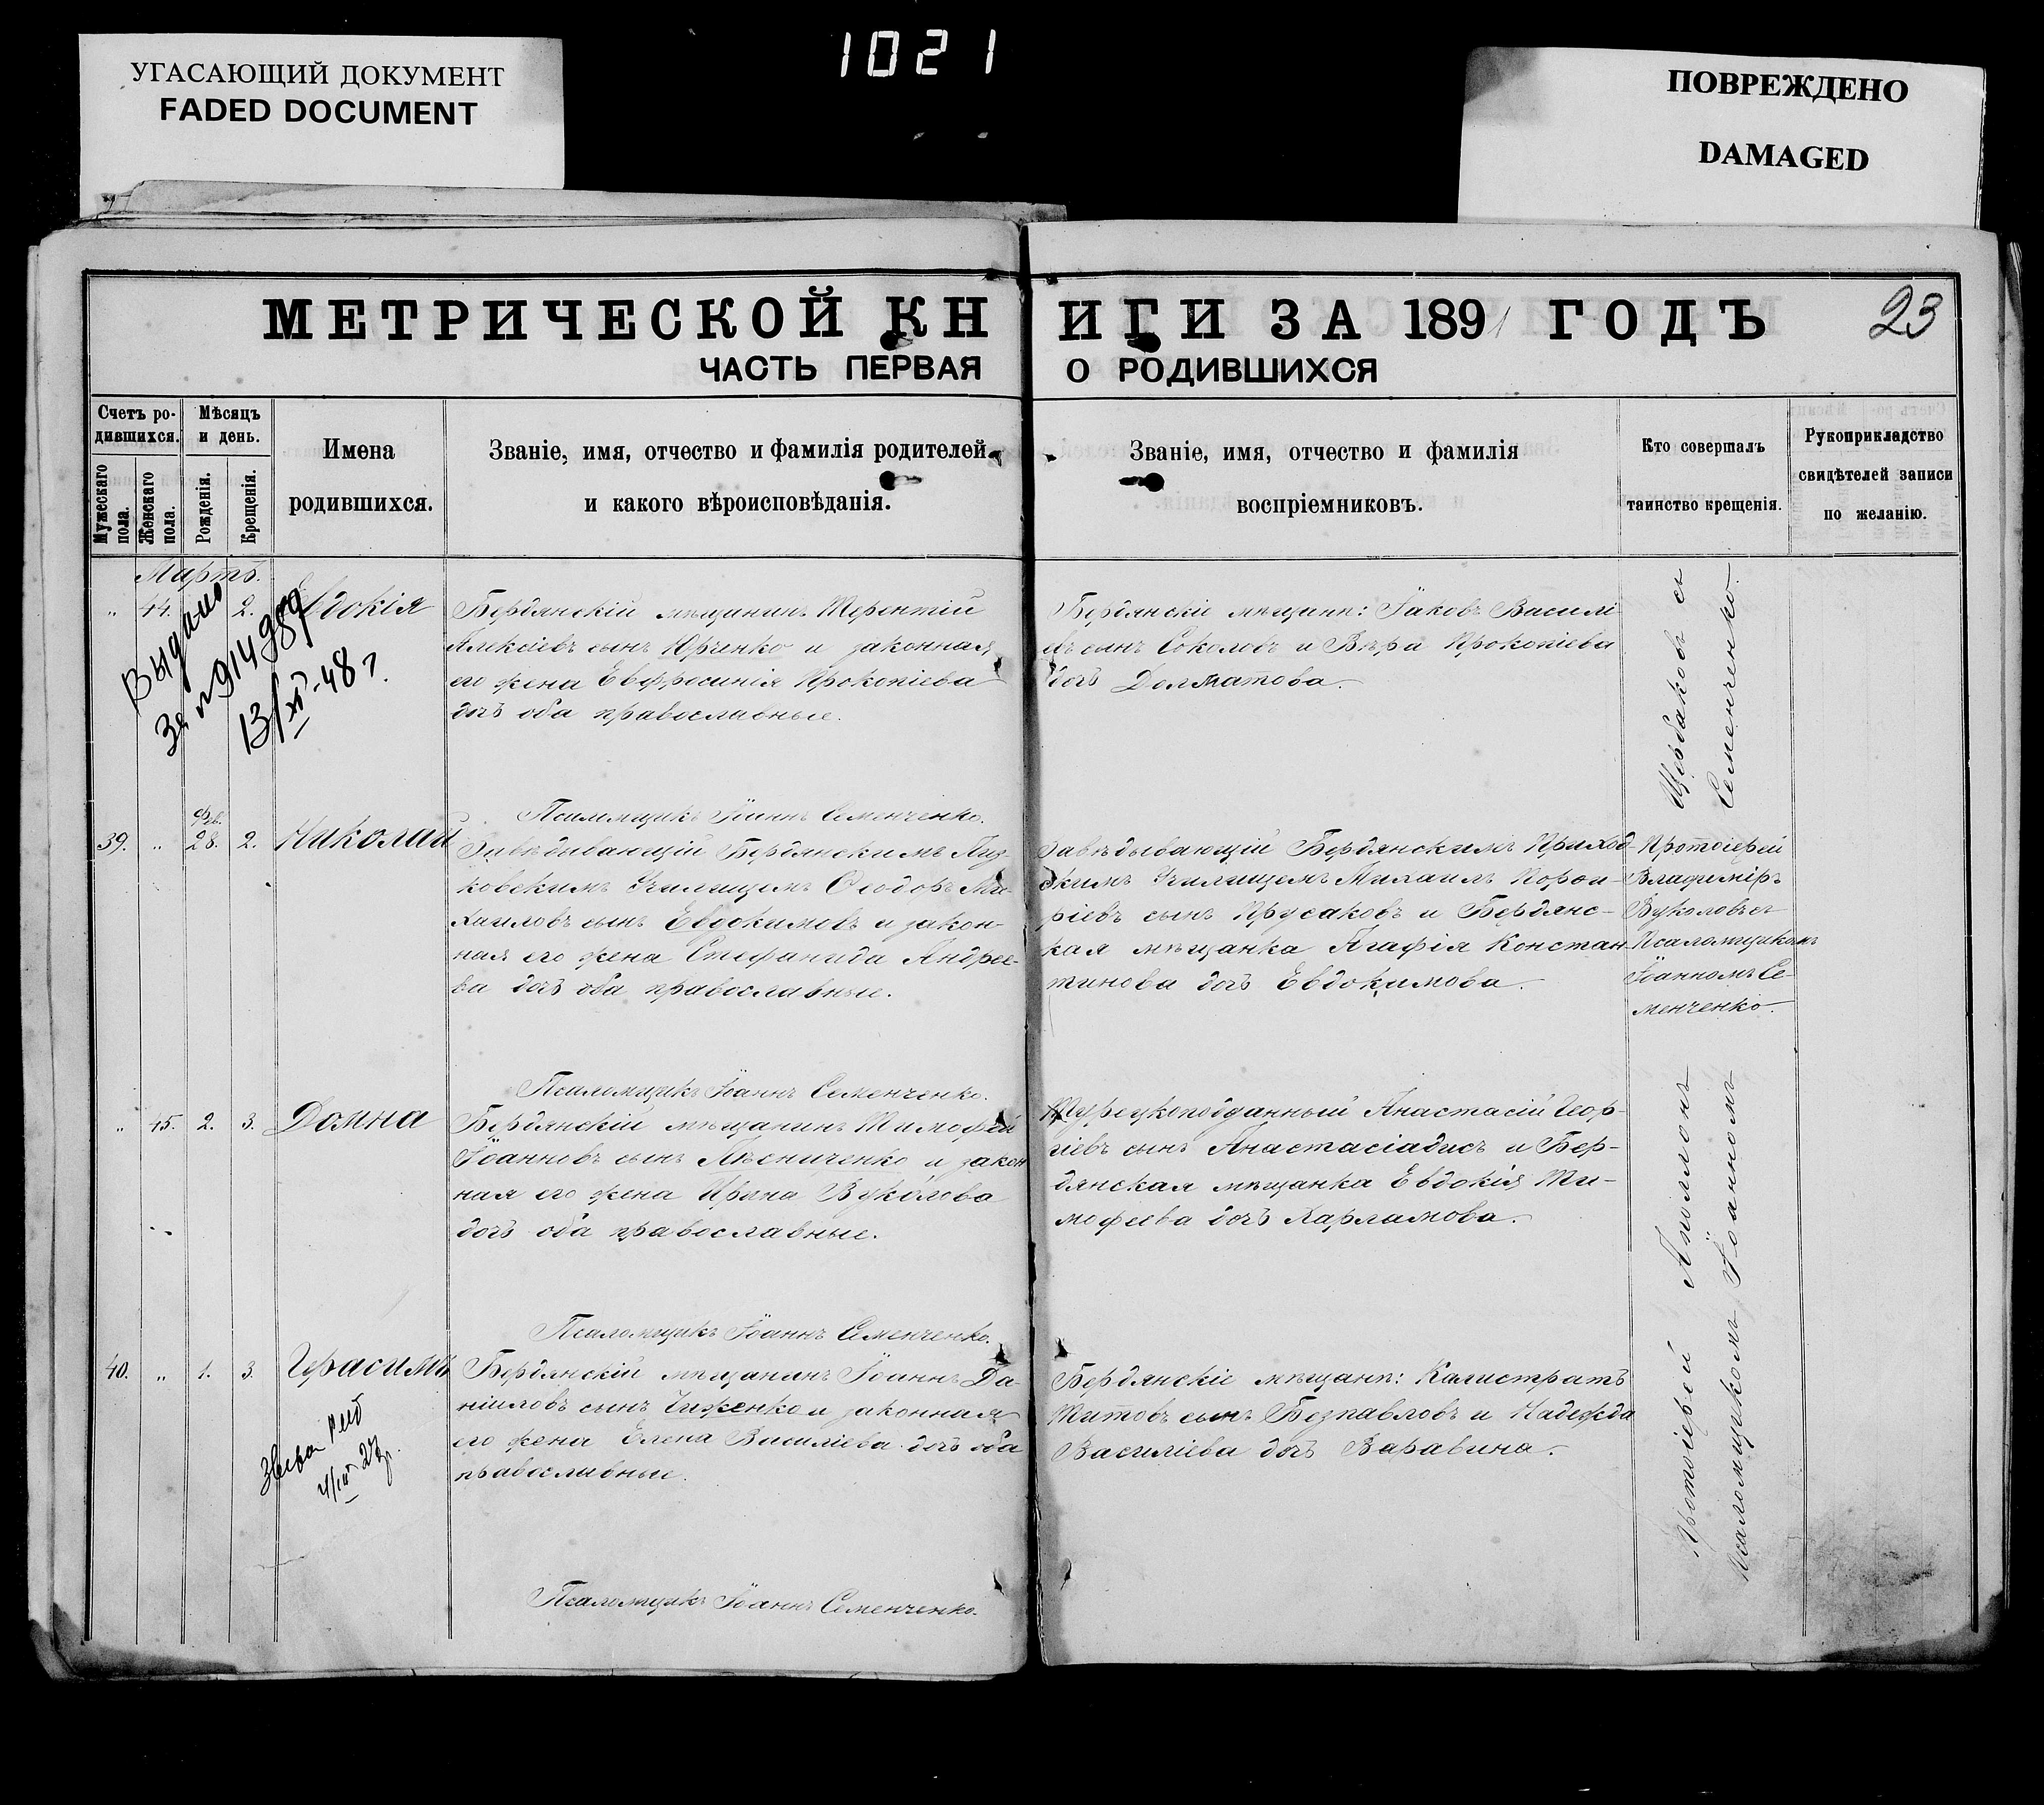 УГАСАЮЩИЙ ДОКУМЕНТ
FADED DOCUMENT
1021
ПОВРЕЖДЕНО
DAMAGED
МЕТРИЧЕСКОЙ КНИГИ ЗА 1891 ГОДЪ
23
ЧАСТЬ ПЕРВАЯ О РОДИВШИХСЯ
Счетъ ро-
дившихся.
Мужескаго
пола.
Женскаго
пола.
Мѣсяцъ
и день.
Рожденія.
Крещенія.
Имена
родившихся.
Званіе, имя, отчество и фамилія родителей
и какого вѣроисповѣданія.
Званіе, имя, отчество и фамилія
воспріемниковъ.
Кто совершалъ
таинство крещенія.
Рукоприкладство
свидѣтелей записи
по желанію.
Мартъ.
" 44. 2. Евдокія
Выдано
За № 914989
13/XI-48 г.
Бердянскій мѣщанинъ Терентій
Алексіевъ сынъ Юрченко и законная
его жена Евфросинія Прокопіева
дочь оба православные.
Псаломщикъ Іоаннъ Семенченко.
Бердянскіе мѣщане: Іаковъ Василі
евъ сынъ Соколовъ и Вѣра Прокопіева
дочь Долматова.
Щербаковъ съ
Семенченко.
39. " Фев. 28. 2. Николай
Завѣдывающій Бердянскимъ
ковскимъ Училищемъ Ѳеодоръ Ми-
хаиловъ сынъ Евдокимовъ и закон-
ная его жена Стефанида Андрее-
ва дочь оба православные.
Псаломщикъ Іоаннъ Семенченко.
Завѣдывающій Бердянскимъ Приход-
скимъ Училищемъ Михаилъ
ріевъ сынъ Прусаковъ и Бердянс-
кая мѣщанка Агафія Констан-
тинова дочь Евдокимова.
Протоіерей
Владиміръ
Вуколовъ съ
Псаломщикомъ
Іоанномъ Се-
менченко.
" 45. 2. 3. Домна
Бердянскій мѣщанинъ Тимофей
Іоанновъ сынъ Пѣсниченко и закон
ная его жена Ирина Вуколова
дочь оба православные.
Псаломщикъ Іоаннъ Семенченко.
Турецкоподданный Анастасій Геор-
гіевъ сынъ Анастасіадисъ и Бер-
дянская мѣщанка Евдокія Ти-
мофеева дочь Харламова.
40. " 1. 3. Герасимъ
4/IV 27 г.
Бердянскій мѣщанинъ Іоаннъ Да-
ніиловъ сынъ Чиженко и законная
его жена Елена Василіева дочь оба
православные.
Псаломщикъ Іоаннъ Семенченко.
Бердянскіе мѣщане: Калистратъ
Титовъ сынъ Безпавловъ и Надежда
Василіева дочь Варавина.
Протоіерей
Псаломщикомъ Іоанномъ